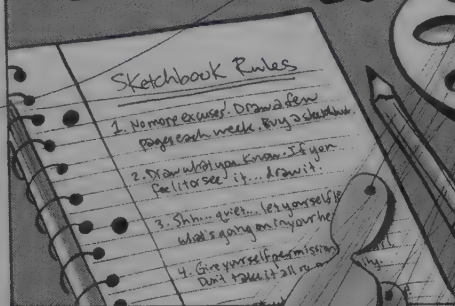 Sketchbook Rules
1. No more excuses. Draw a few
pages each week. Buy a sketchbook
2. Draw what you know. If you
feel it or see it... draw it.
3. Shh... quiet... let yourself
what's going on in your he
4. Give yourself permission
Don't take it all